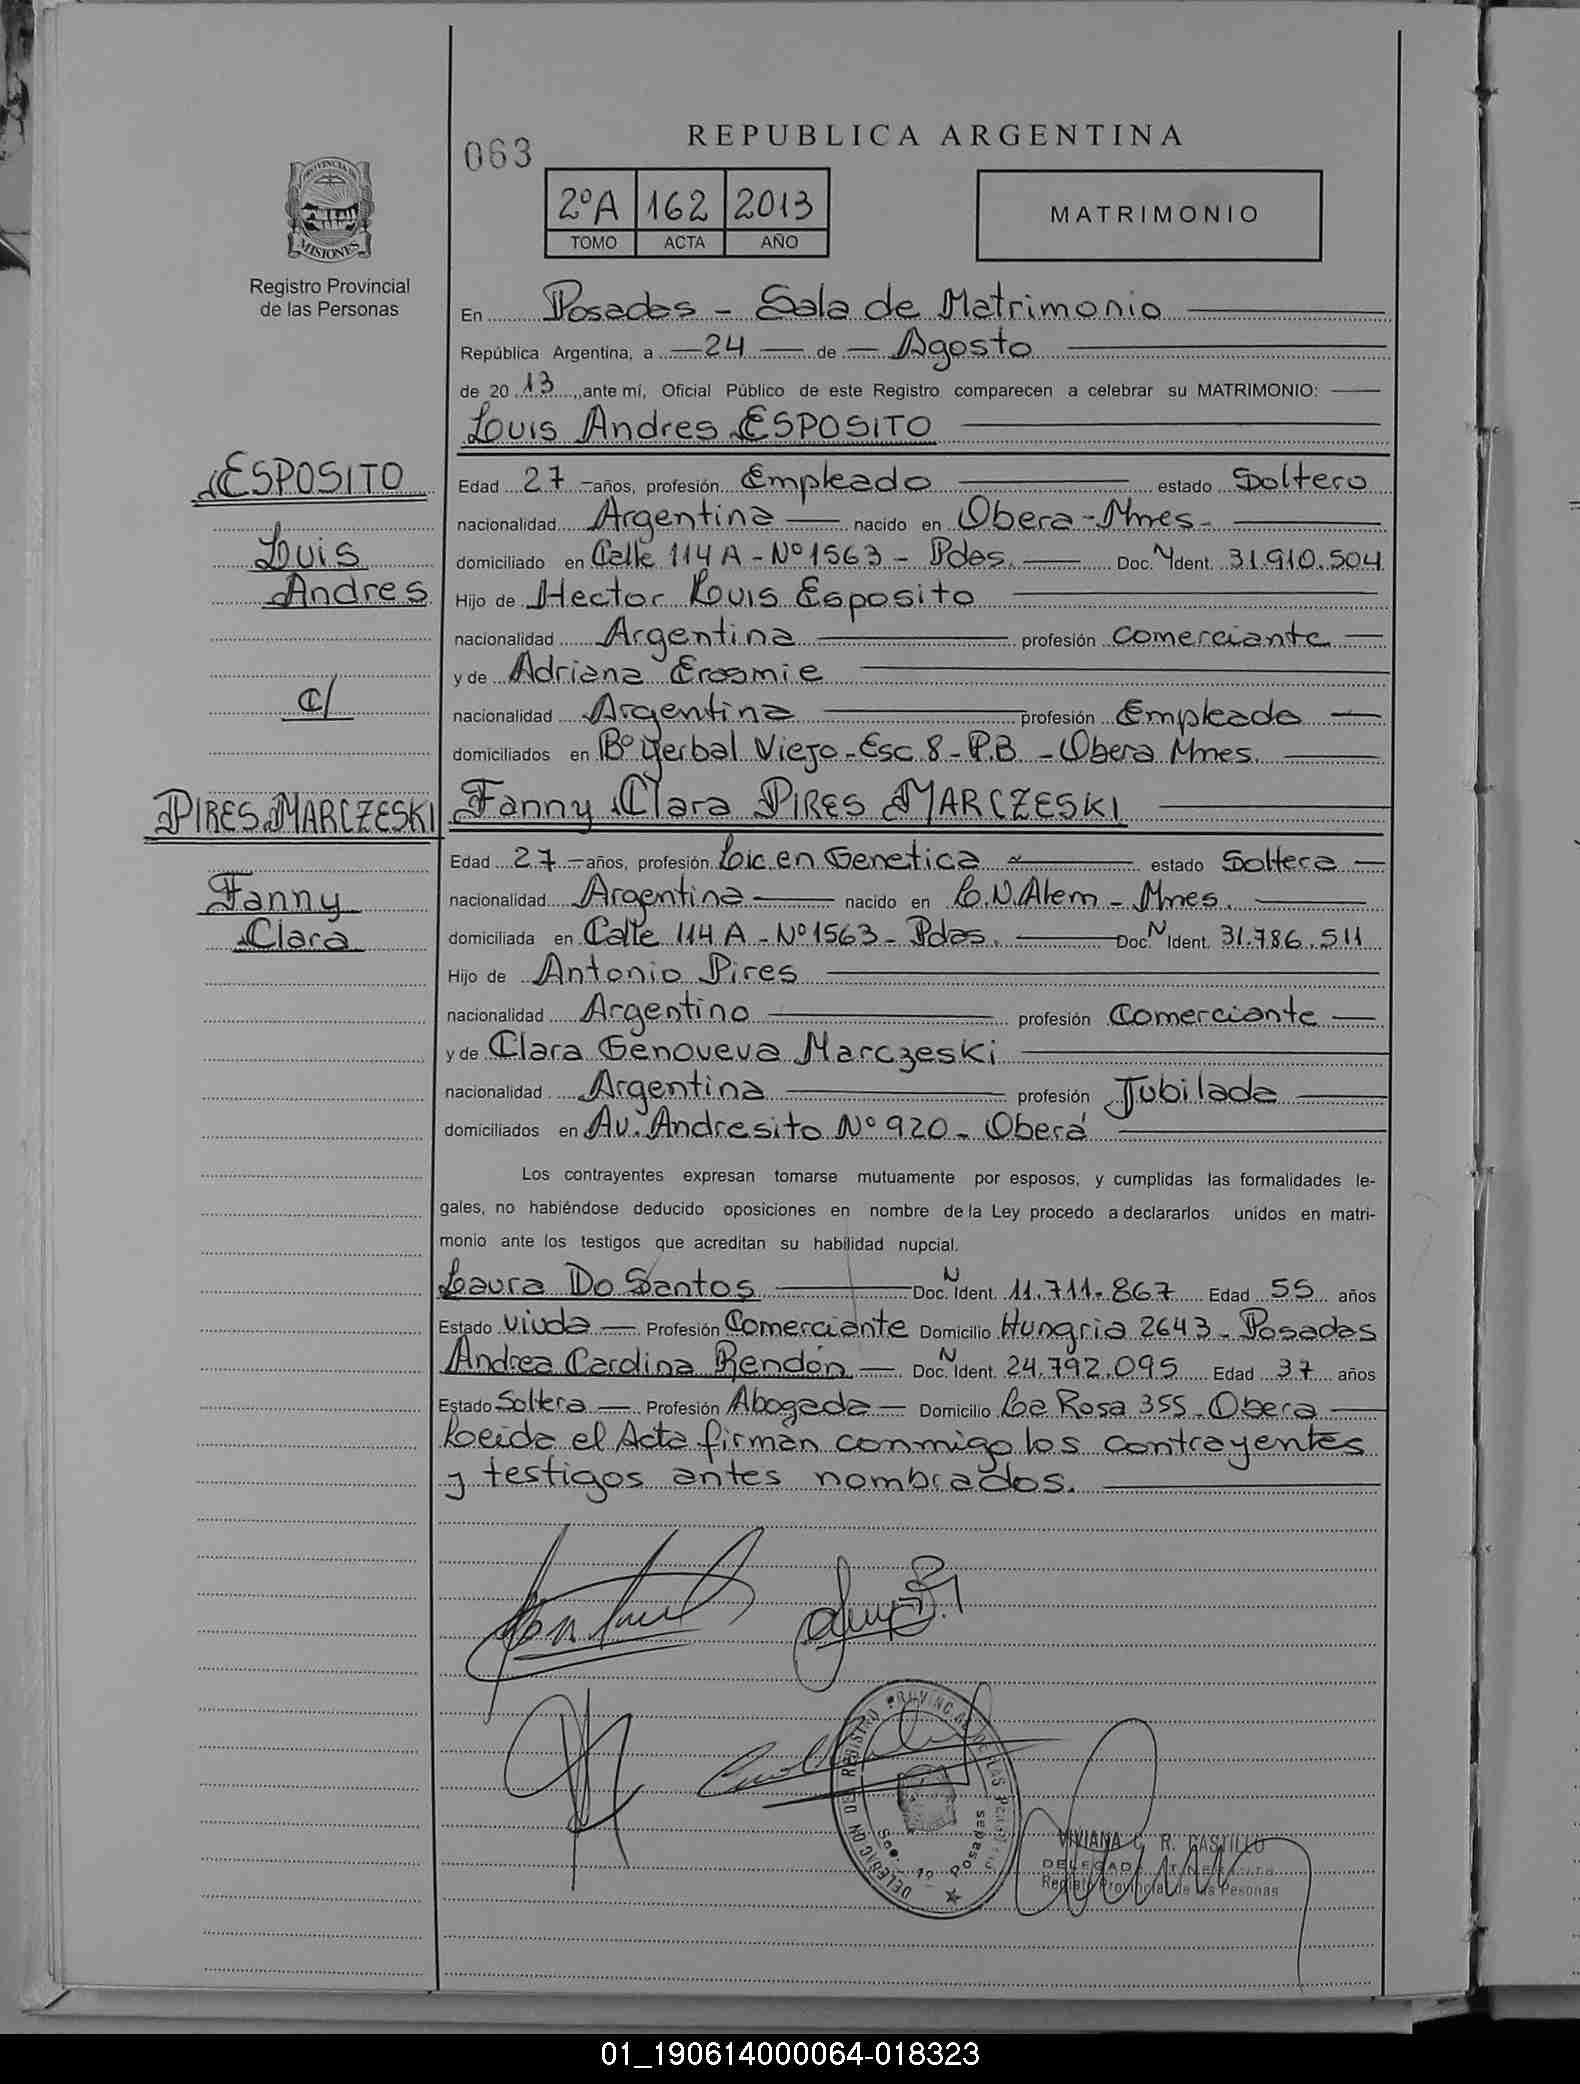 063
REPUBLICA ARGENTINA
PROVINCIA DE
MISIONES
Registro Provincial
de las Personas
2ºA 162 2013
TOMO ACTA AÑO
MATRIMONIO
En Posadas - Sala de Matrimonio
República Argentina, a 24 de Agosto
de 20 13, ante mí, Oficial Público de este Registro comparecen a celebrar su MATRIMONIO:
Luis Andres ESPOSITO
ESPOSITO
Luis
Andres
C/
PIRES MARCZESKI
Fanny
Clara
Edad 27 años, profesión Empleado estado Soltero
nacionalidad Argentina nacido en Obera - Mnes -
domiciliado en Calle 114 A - Nº 1563 - Pdas. Doc. N Ident. 31.910.504
Hijo de Hector Luis Esposito
nacionalidad Argentina profesión Comerciante
y de Adriana Erasmie
nacionalidad Argentina profesión Empleada
domiciliados en Bº Yerbal Viejo - Esc. 8 - P.B - Obera Mnes.
Fanny Clara PIRES MARCZESKI
Edad 27 años, profesión Lic. en Genetica estado Soltera
nacionalidad Argentina nacido en L.N. Alem - Mnes.
domiciliada en Calle 114 A - Nº 1563 - Pdas. Doc. N Ident. 31.786.511
Hijo de Antonio Pires
nacionalidad Argentino profesión Comerciante
y de Clara Genoveva Marczeski
nacionalidad Argentina profesión Jubilada
domiciliados en Av. Andresito Nº 920 - Oberá
Los contrayentes expresan tomarse mutuamente por esposos, y cumplidas las formalidades le-
gales, no habiéndose deducido oposiciones en nombre de la Ley procedo a declararlos unidos en matri-
monio ante los testigos que acreditan su habilidad nupcial.
Laura Do Santos Doc. N Ident. 11.711.867 Edad 55 años
Estado Viuda Profesión Comerciante Domicilio Hungria 2643 - Posadas
Andrea Carolina Rendón Doc. N Ident. 24.792.095 Edad 37 años
Estado Soltera Profesión Abogada Domicilio La Rosa 355 - Obera
Leida el Acta firman conmigo los contrayentes
y testigos antes nombrados.
DELEGACION DEL REGISTRO PROVINCIAL DE LAS
Sec. Posadas
VIVIANA C. R. CASTILLO
DELEGADA ITINERANTE
Registro Provincial de las Pesonas
01_190614000064-018323